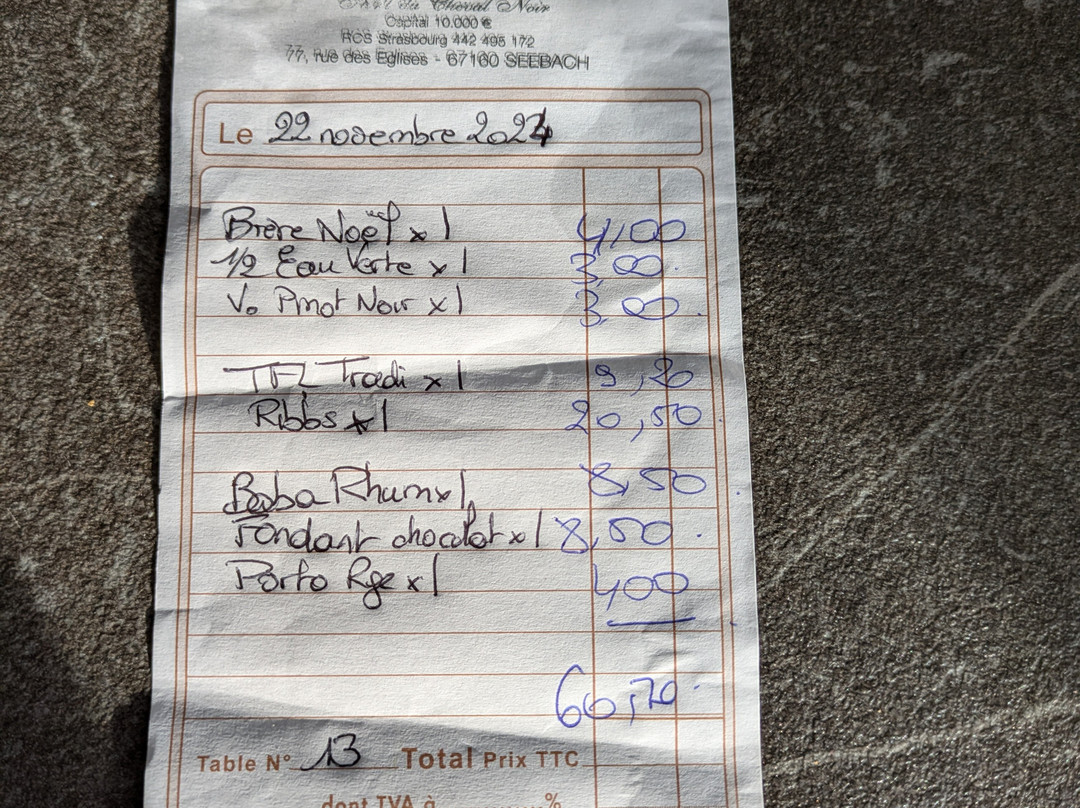 du Cheval Noir
Capital 10.000 €
RCS Strasbourg 442 495 172
77, rue des Eglises - 67160 SEEBACH
Le 22 novembre 2024
Bière Noël x 1 4,00
1/2 Eau Verte x 1 3,00
V. Pinot Noir x 1 3,00
TFL Tradi x 1 9,20
Ribbs x 1 20,50
Baba Rhum x 1 8,50
Fondant chocolat x 1 8,50
Porto Rge x 1 400
60,70
Table N° 13 Total Prix TTC
dont TVA à %